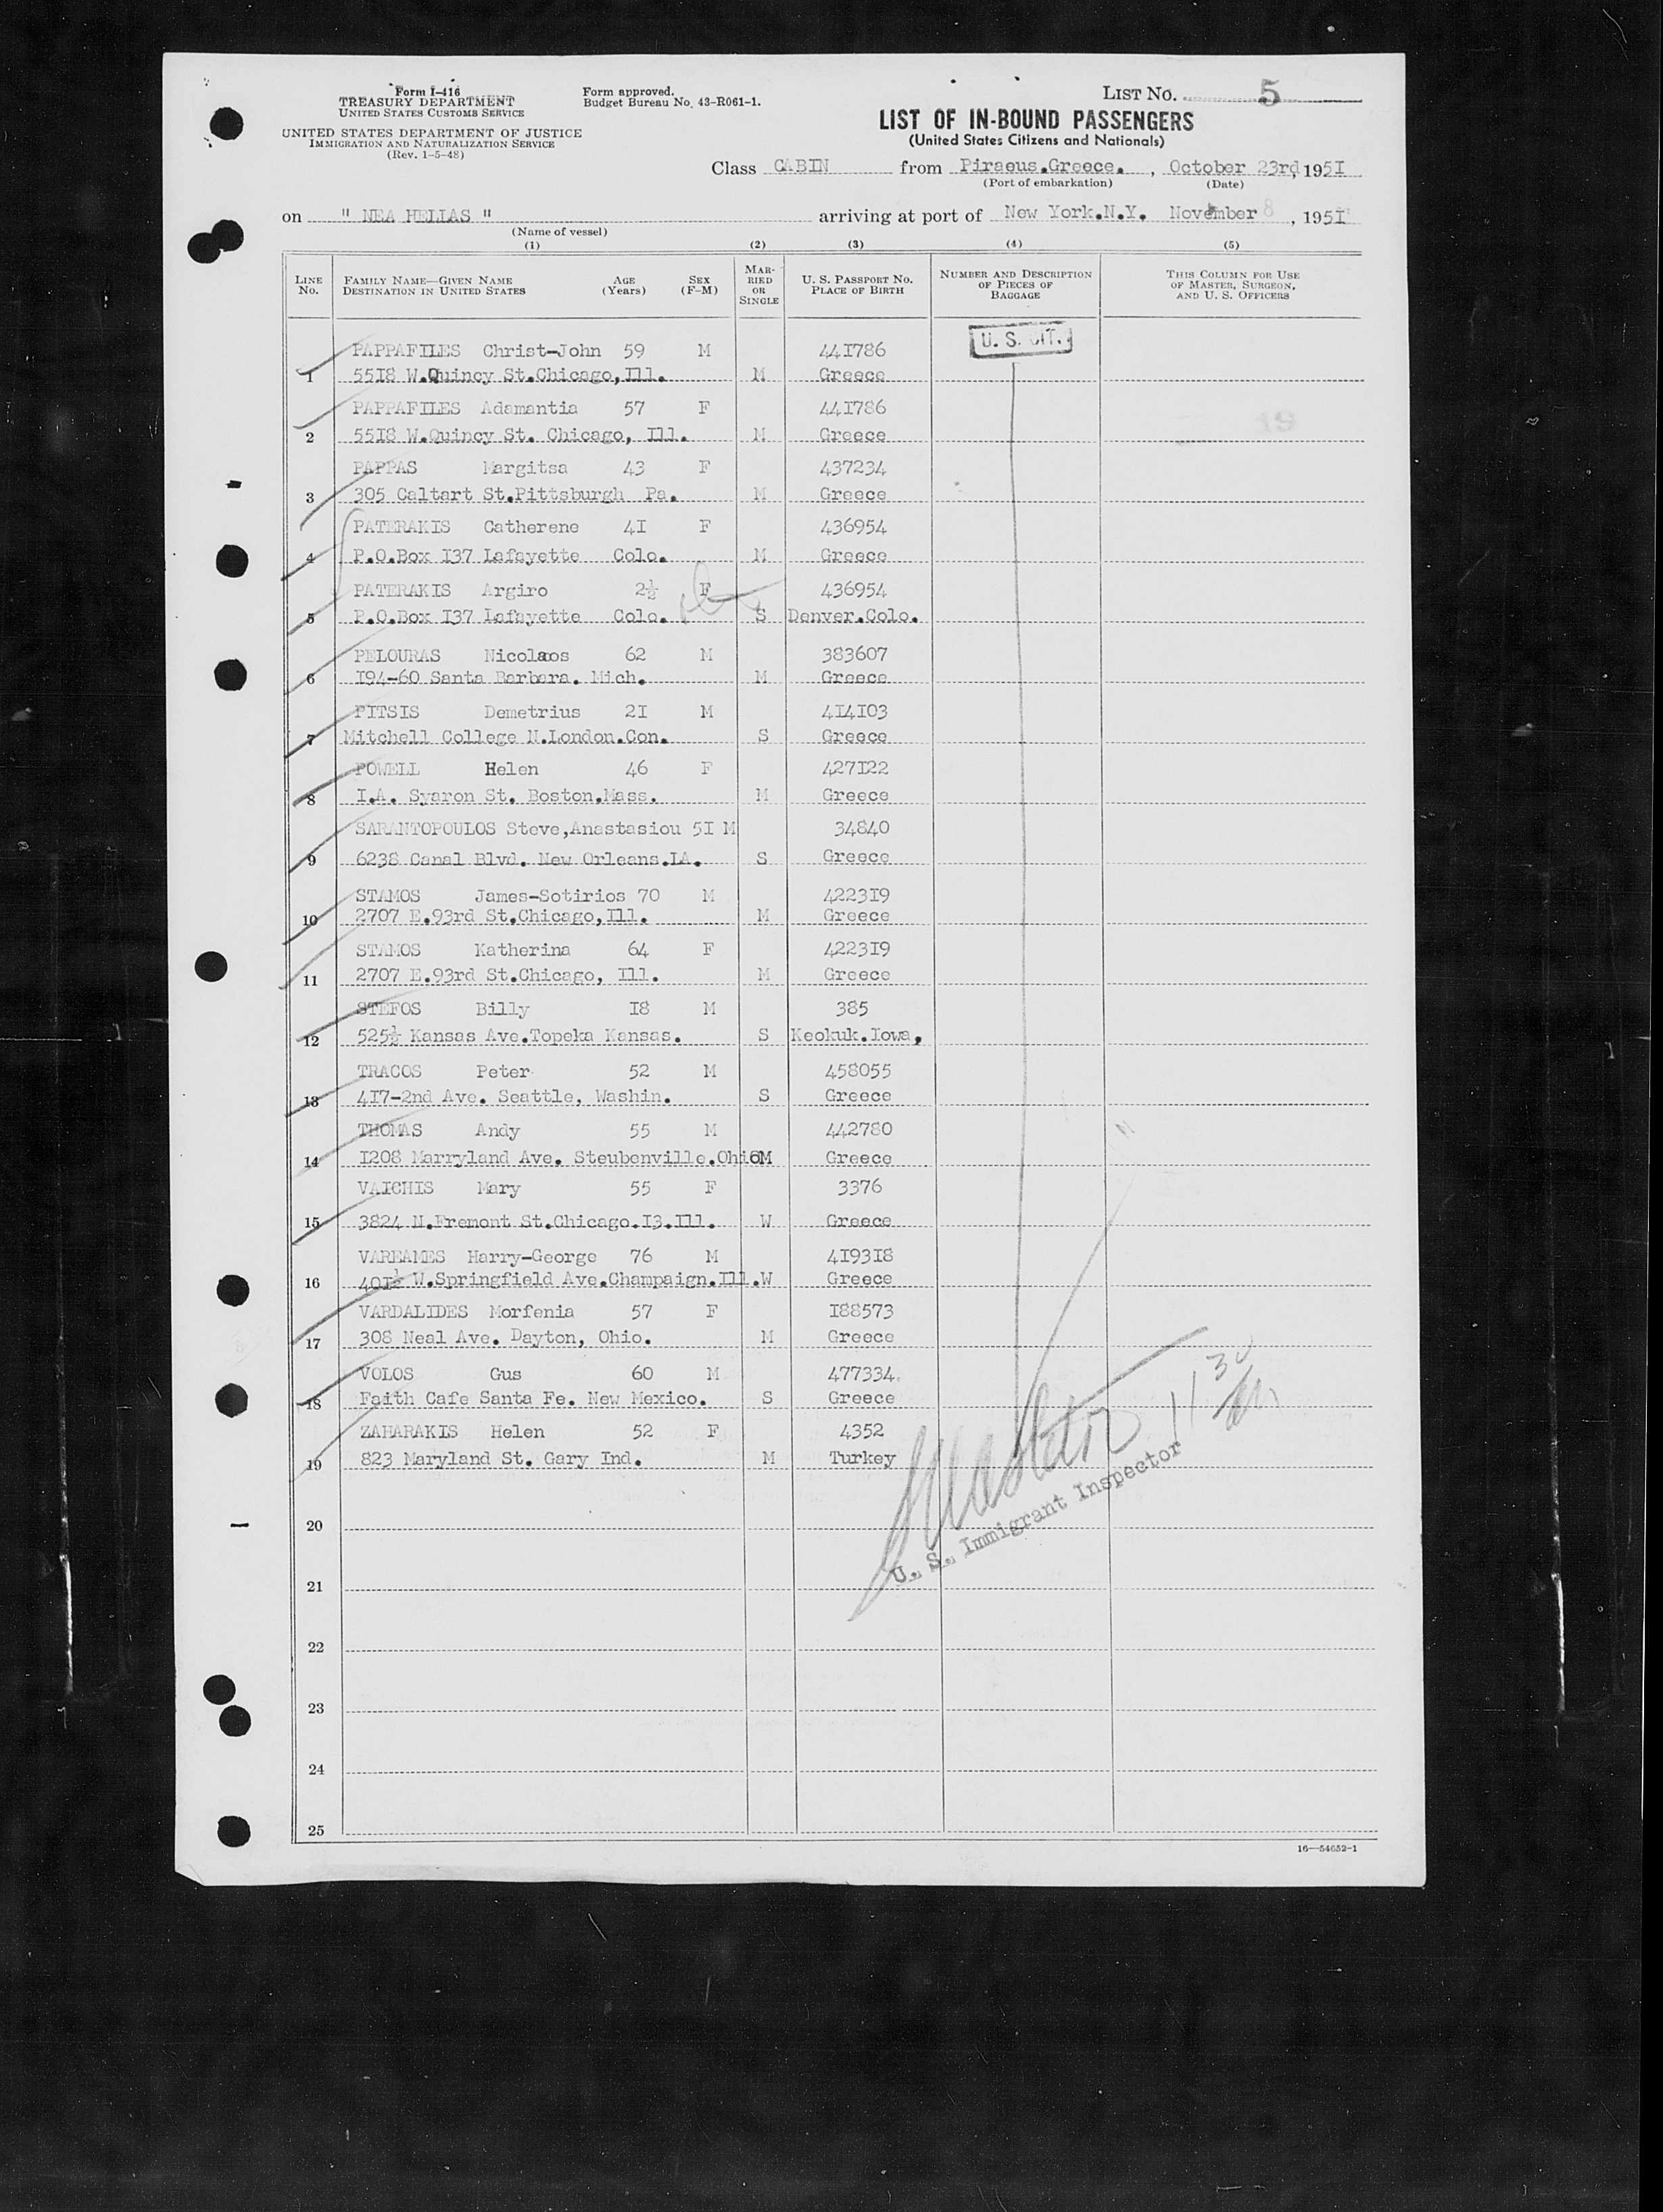 Form I-416
TREASURY DEPARTMENT
UNITED STATES CUSTOMS SERVICE
UNITED STATES DEPARTMENT OF JUSTICE
IMMIGRATION AND NATURALIZATION SERVICE
(Rev. 1-5-48)
Form approved.
Budget Bureau No. 43-R061-1.
LIST No. 5
LIST OF IN-BOUND PASSENGERS
(United States Citizens and Nationals)
Class CABIN from Piraeus.Greece. , October 23rd, 1951
(Port of embarkation) (Date)
on " NEA HELLAS " arriving at port of New York.N.Y. November 8 , 1951
(Name of vessel)
(1) (2) (3) (4) (5)
LINE No. FAMILY NAME—GIVEN NAME DESTINATION IN UNITED STATES AGE (Years) SEX (F-M) MARRIED OR SINGLE U. S. PASSPORT No. PLACE OF BIRTH NUMBER AND DESCRIPTION OF PIECES OF BAGGAGE THIS COLUMN FOR USE OF MASTER, SURGEON, AND U. S. OFFICERS
U. S. CIT.
PAPPAFILES Christ-John 59 M 441786
1 5518 W.Quincy St.Chicago,Ill. M Greece
PAPPAFILES Adamantia 57 F 441786
19
2 5518 W.Quincy St. Chicago, Ill. M Greece
PAPPAS Margitsa 43 F 437234
3 305 Caltart St.Pittsburgh Pa. M Greece
PATERAKIS Catherene 41 F 436954
4 P.O.Box 137 Lafayette Colo. M Greece
PATERAKIS Argiro 2½ F 436954
5 P.O.Box 137 Lafayette Colo. S Denver.Colo.
PELOURAS Nicolaos 62 M 383607
6 194-60 Santa Barbara. Mich. M Greece
PITSIS Demetrius 21 M 414103
7 Mitchell College N.London.Con. S Greece
POWELL Helen 46 F 427122
8 I.A. Syaron St. Boston.Mass. M Greece
SARANTOPOULOS Steve,Anastasiou 51 M 34840
9 6238 Canal Blvd. New Orleans.LA. S Greece
STAMOS James-Sotirios 70 M 422319
10 2707 E.93rd St.Chicago,Ill. M Greece
STAMOS Katherina 64 F 422319
11 2707 E.93rd St.Chicago, Ill. M Greece
STEFOS Billy 18 M 385
12 525½ Kansas Ave.Topeka Kansas. S Keokuk.Iowa,
TRACOS Peter 52 M 458055
13 417-2nd Ave. Seattle, Washin. S Greece
THOMAS Andy 55 M 442780
14 1208 Marryland Ave. Steubenville.Ohio M Greece
VAICHIS Mary 55 F 3376
15 3824 N.Fremont St.Chicago.13.Ill. W Greece
VAREAMES Harry-George 76 M 419318
16 401½ W.Springfield Ave.Champaign.Ill. W Greece
VARDALIDES Morfenia 57 F 188573
17 308 Neal Ave. Dayton, Ohio. M Greece
VOLOS Gus 60 M 477334.
18 Faith Cafe Santa Fe. New Mexico. S Greece
ZAHARAKIS Helen 52 F 4352
19 823 Maryland St. Gary Ind. M Turkey
U. S. Immigrant Inspector
20
21
22
23
24
25
16—54652-1